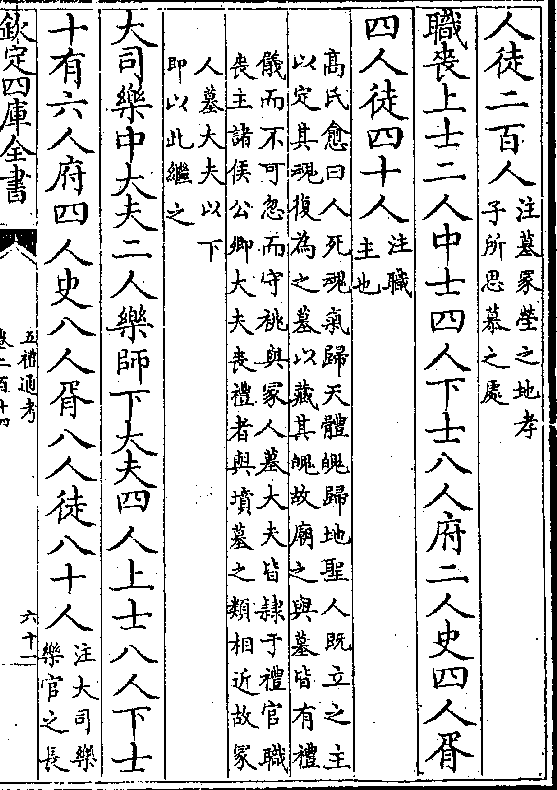 人徒二百人注墓冢塋之地孝
子所思慕之處
職喪上士二人中士四人下士八人府二人史四人胥
四人徒四十人注職
主也
高氏愈曰人死魂氣歸天體魄歸地聖人既立之主
以定其魂復為之墓以藏其魄故廟之與墓皆有禮
儀而不可忽而守祧與冢人墓大夫皆隷于禮官職
喪主諸侯公卿大夫喪禮者與墳墓之類相近故冢
人墓大夫以下
即以此繼之
大司樂中大夫二人樂師下大夫四人上士八人下士
十有六人府四人史八人胥八人徒八十人注大司樂
樂官之長
欽定四庫全書
五禮通考
卷二百十四
六十一